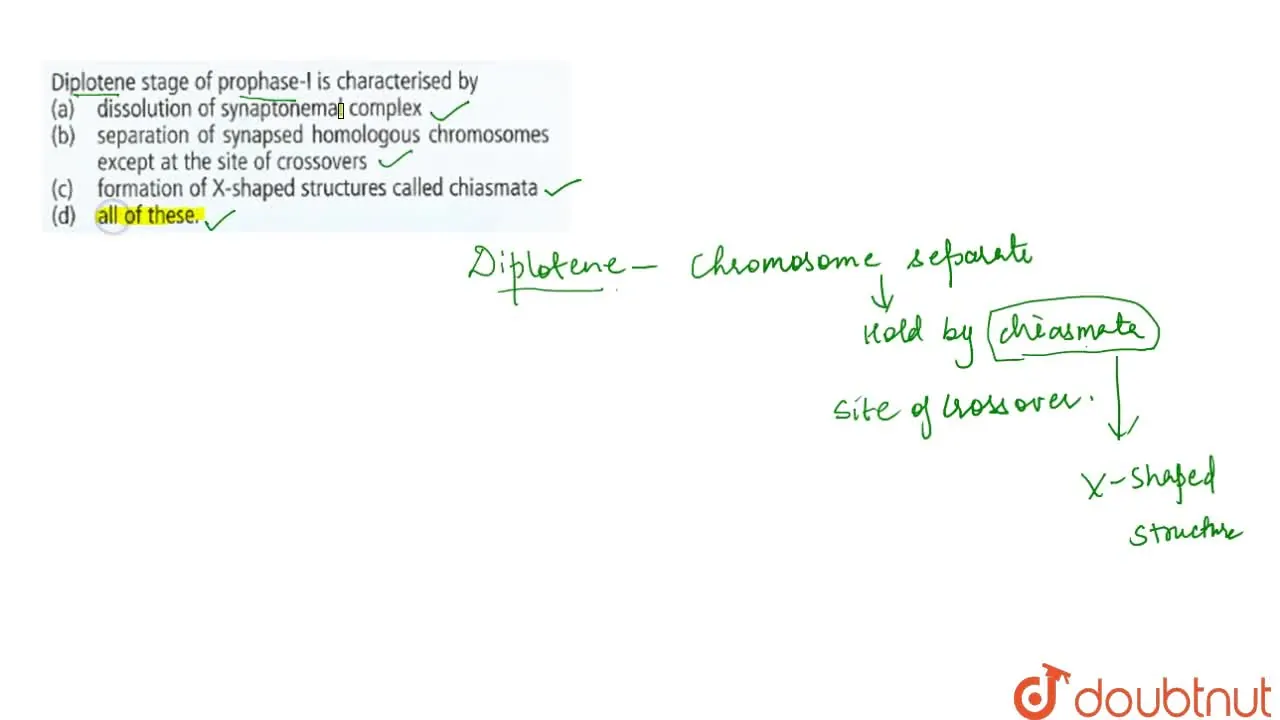 Diplotene stage of prophase-I is characterised by
(a) dissolution of synaptonemal complex
(b) separation of synapsed homologous chromosomes
except at the site of crossovers
(c) formation of X-shaped structures called chiasmata
(d) all of these.
Diplotene - Chromosome separate
Hold by chiasmata
Site of crossover.
X-shaped
structure
doubtnut